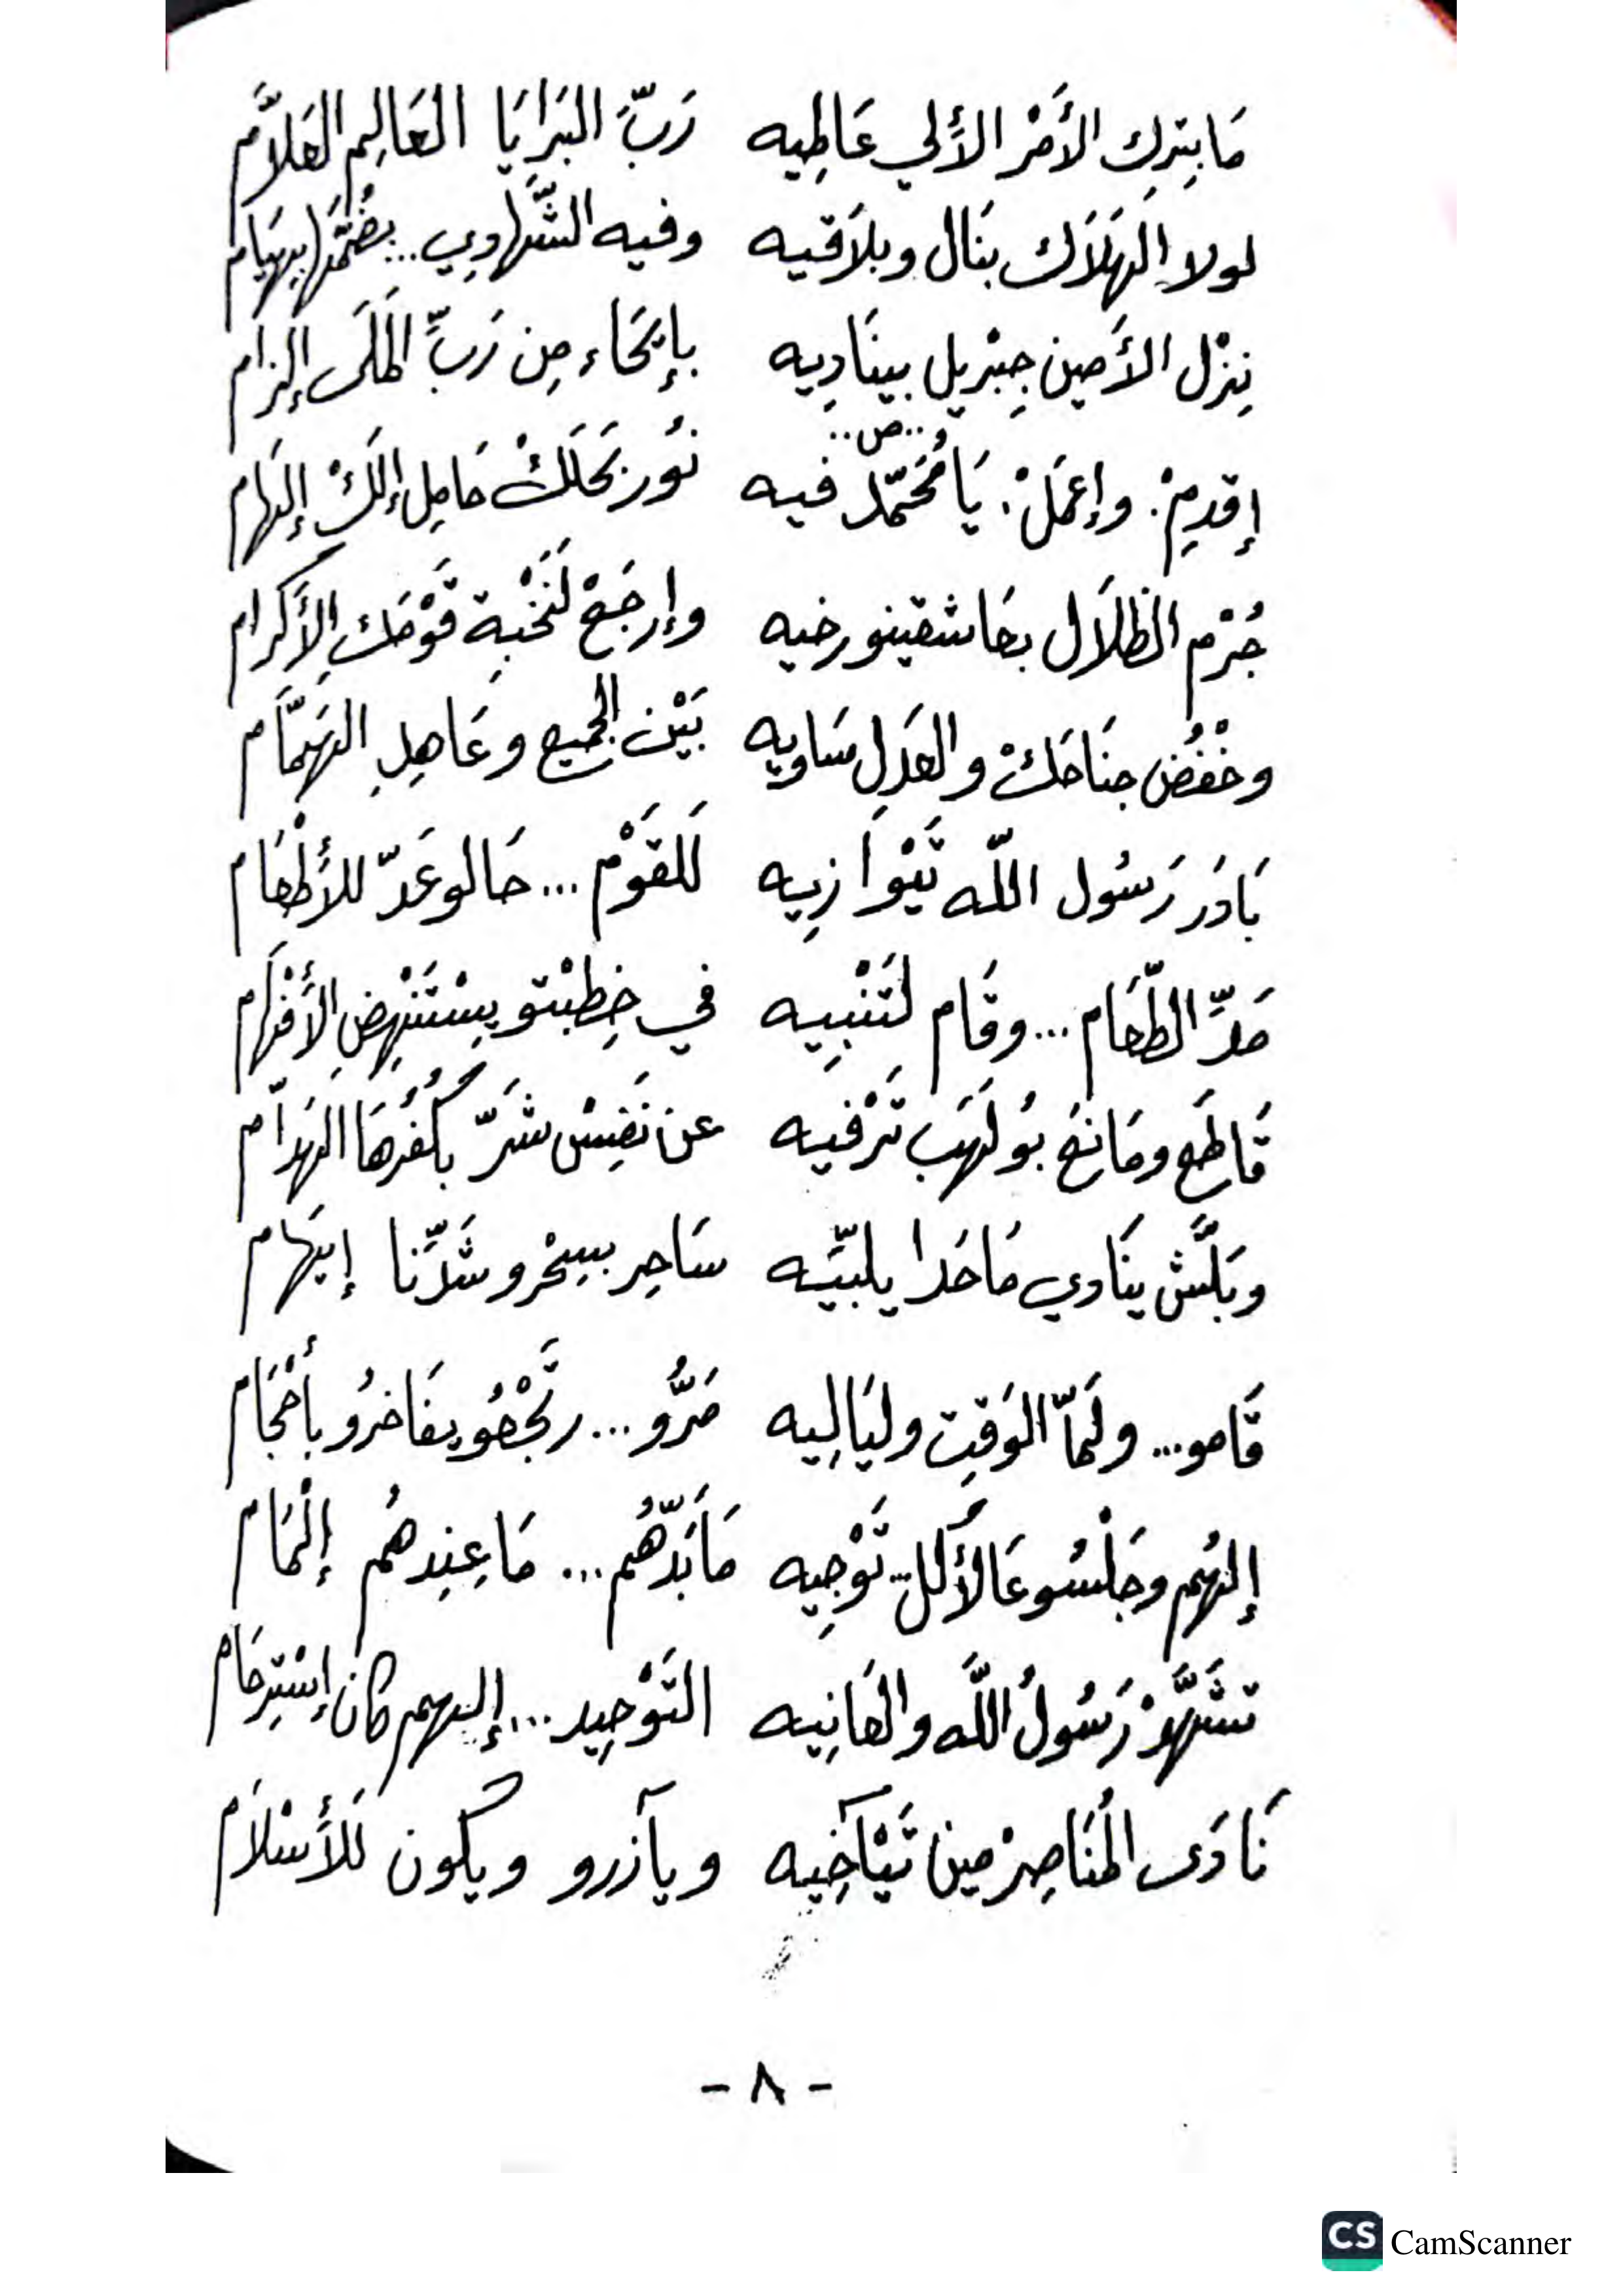 مَا بِترِك الأَمْر الأَلي عَاطِيه رَبَّ البَرَايَا العَالِم العَلاَّم
لولا الهَلَاك بنَال وبلاَقيه وفيه الشَّهاوِي.. يضُمَّها بِهيَام
نِزْل الأَمين جِبْريل بينَادِيه بإيحَاء مِن رَبِّ المَلَى إلزام
..ص..
إقدِمْ: وإعمَلْ: يَا مُحَمّد فيه نُور نحَلَكْ حَامِل إلَكْ إلهَام
جُرْم الظلاَل بحَاشقينو رخيه وإرجَعْ لَنَخْبِة قَوْمَك الأَكرام
وخْفُض جنَاحَكْ والعَدِل سَاويه بَيْن الجميع وعَاهِلِ الهَمَّام
بَادَر رَسُول اللّه تَيْوَازِيه لَلقَوْم... حَالو عَدّ للأَطْعَام
مَدِّ الطّعَام... وقَام لَتَنْبِيه في خِطبْتو يِسْتَنْهِضِ الأَفْهَام
قَاطَع ومَانِعْ بوُ لَهَب تَرْفيه عن نَفِسْ شَرّ بكُفُرْهَا الهَدّام
وبَلَّش ينَادي مَا حَدا يلبّيَه سَاحِر بسِحْرو شَدِّنا إيهَام
قَامو... ولَمّا الوَقِت وليَالِيه مَرُّو... رجْعُو يفَاخرُو بأحْجَام
إلهُم وجَلْسُو عَالأَكل... تَوْجِيه مَا بَدّهُم... مَا عِندهُم إلْمَام
تشَهَّدْ رَسُولُ اللَّه والعَانِيه التَوْحِيد... إلهم كان إسْتِرحَام
نَادَى المُنَاصِرْ مين تَيْآخِيه ويآزرو ويكون لَلأَسْلاَم
- ٨ -
CS CamScanner